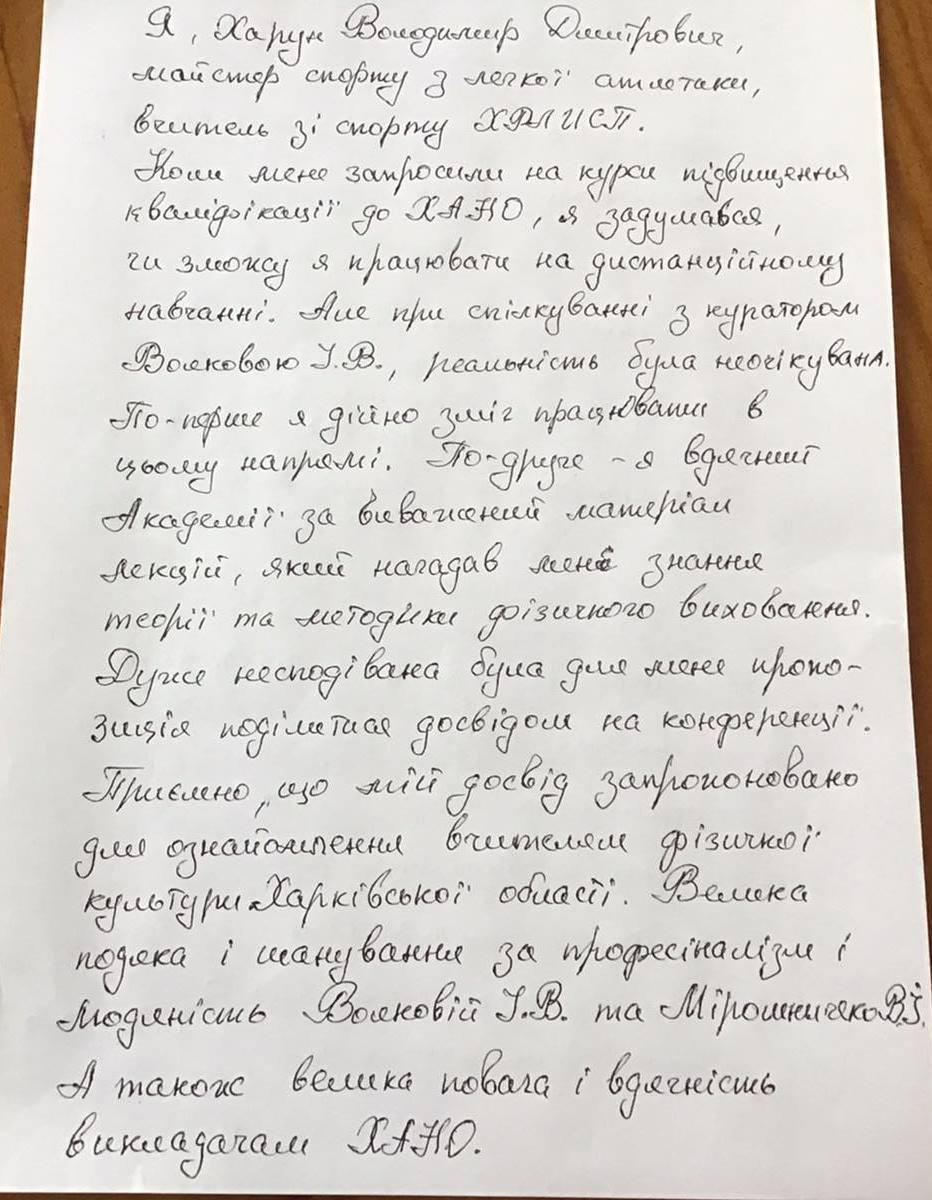 Я, Харун Володимир Дмитрович,
майстер спорту з легкої атлетаки,
вчитель зі спорту ХРЛИСП.
Коли мене запросили на курси підвищення
кваліфікації до ХАНО, я задумався,
чи зможу я працювати на дистанційному
навчанні. Але при спілкуванні з куратором
Волковою І.В., реальність була неочікувана.
По-перше я дійно зміг працювати в
цьому напрямі. По-друге - я вдячний
Академії за виважений матеріал
лекцій, який нагадав мені знання
теорії та методики фізичного виховання.
Дуже несподівана була для мене пропо-
зиція поділитися досвідом на конференції.
Приємно, що мій досвід запропоновано
для ознайомлення вчителям фізичної
культури Харківської області. Велика
подяка і шанування за професіналізм і
людяність Волковій І.В. та Мірошничеко В.І.
А також велика повага і вдячність
викладачам ХАНО.